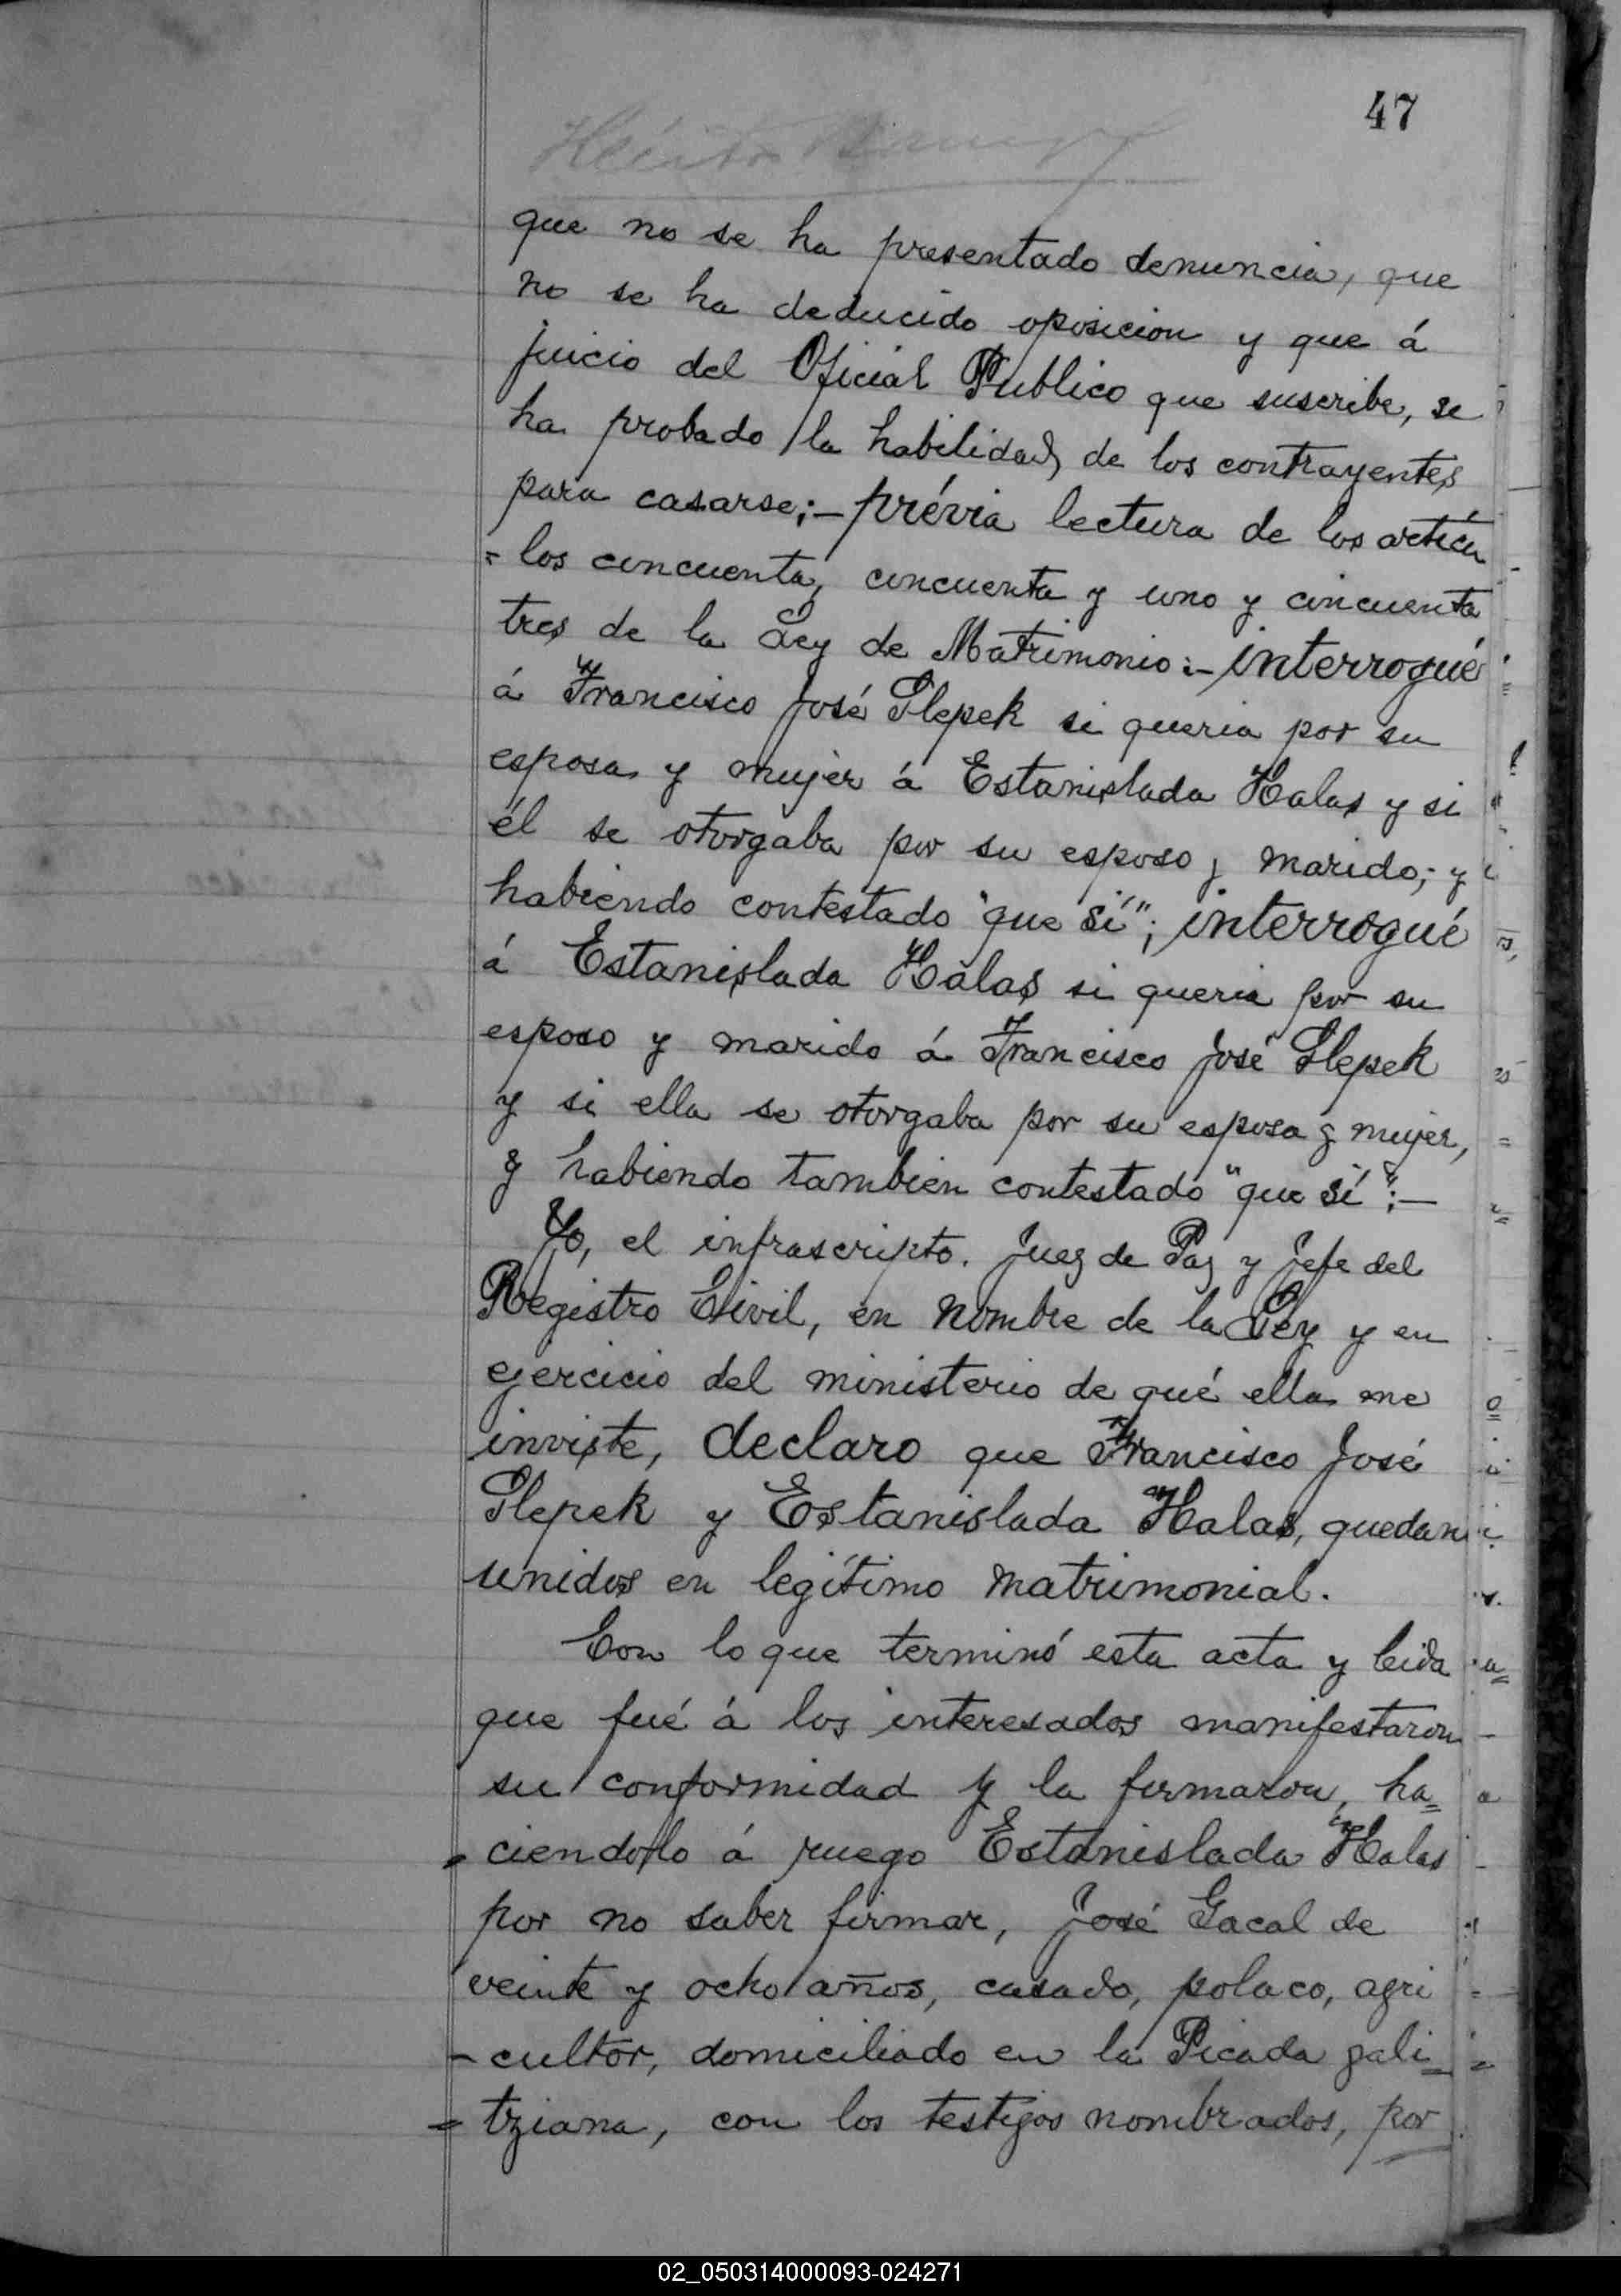 47
que no se ha presentado denuncia, que
no se ha deducido oposicion y que á
juicio del Oficial Publico que suscribe, se
ha probado la habilidad, de los contrayentes
para casarse;- prévia lectura de los artícu
= los cincuenta, cincuenta y uno y cincuenta
tres de la Ley de Matrimonio:- interrogué
á Francisco José Slepek si queria por su
esposa y mujer á Estanislada Halas y si
él se otorgaba por su esposo y marido; y
habiendo contestado "que sí"; interrogué
á Estanislada Halas si queria por su
esposo y marido á Francisco José Slepek
y si ella se otorgaba por su esposa y mujer,
y habiendo tambien contestado "que sí";-
Yo, el infrascripto. Juez de Paz y Jefe del
Registro Civil, en nombre de la Ley y en
ejercicio del ministerio de qué ella me
inviste, declaro que Francisco José
Slepek y Estanislada Halas, quedan
unidos en legítimo matrimonial.
Con lo que terminó esta acta y leida
que fué á los interesados manifestaron
su conformidad y la firmaron, ha=
ciendolo á ruego Estanislada Halas
por no saber firmar, José Gacal de
veinte y ocho años, casado, polaco, agri
- cultor, domiciliado en la Picada gali=
= tziana, con los testigos nombrados, por
02_050314000093-024271